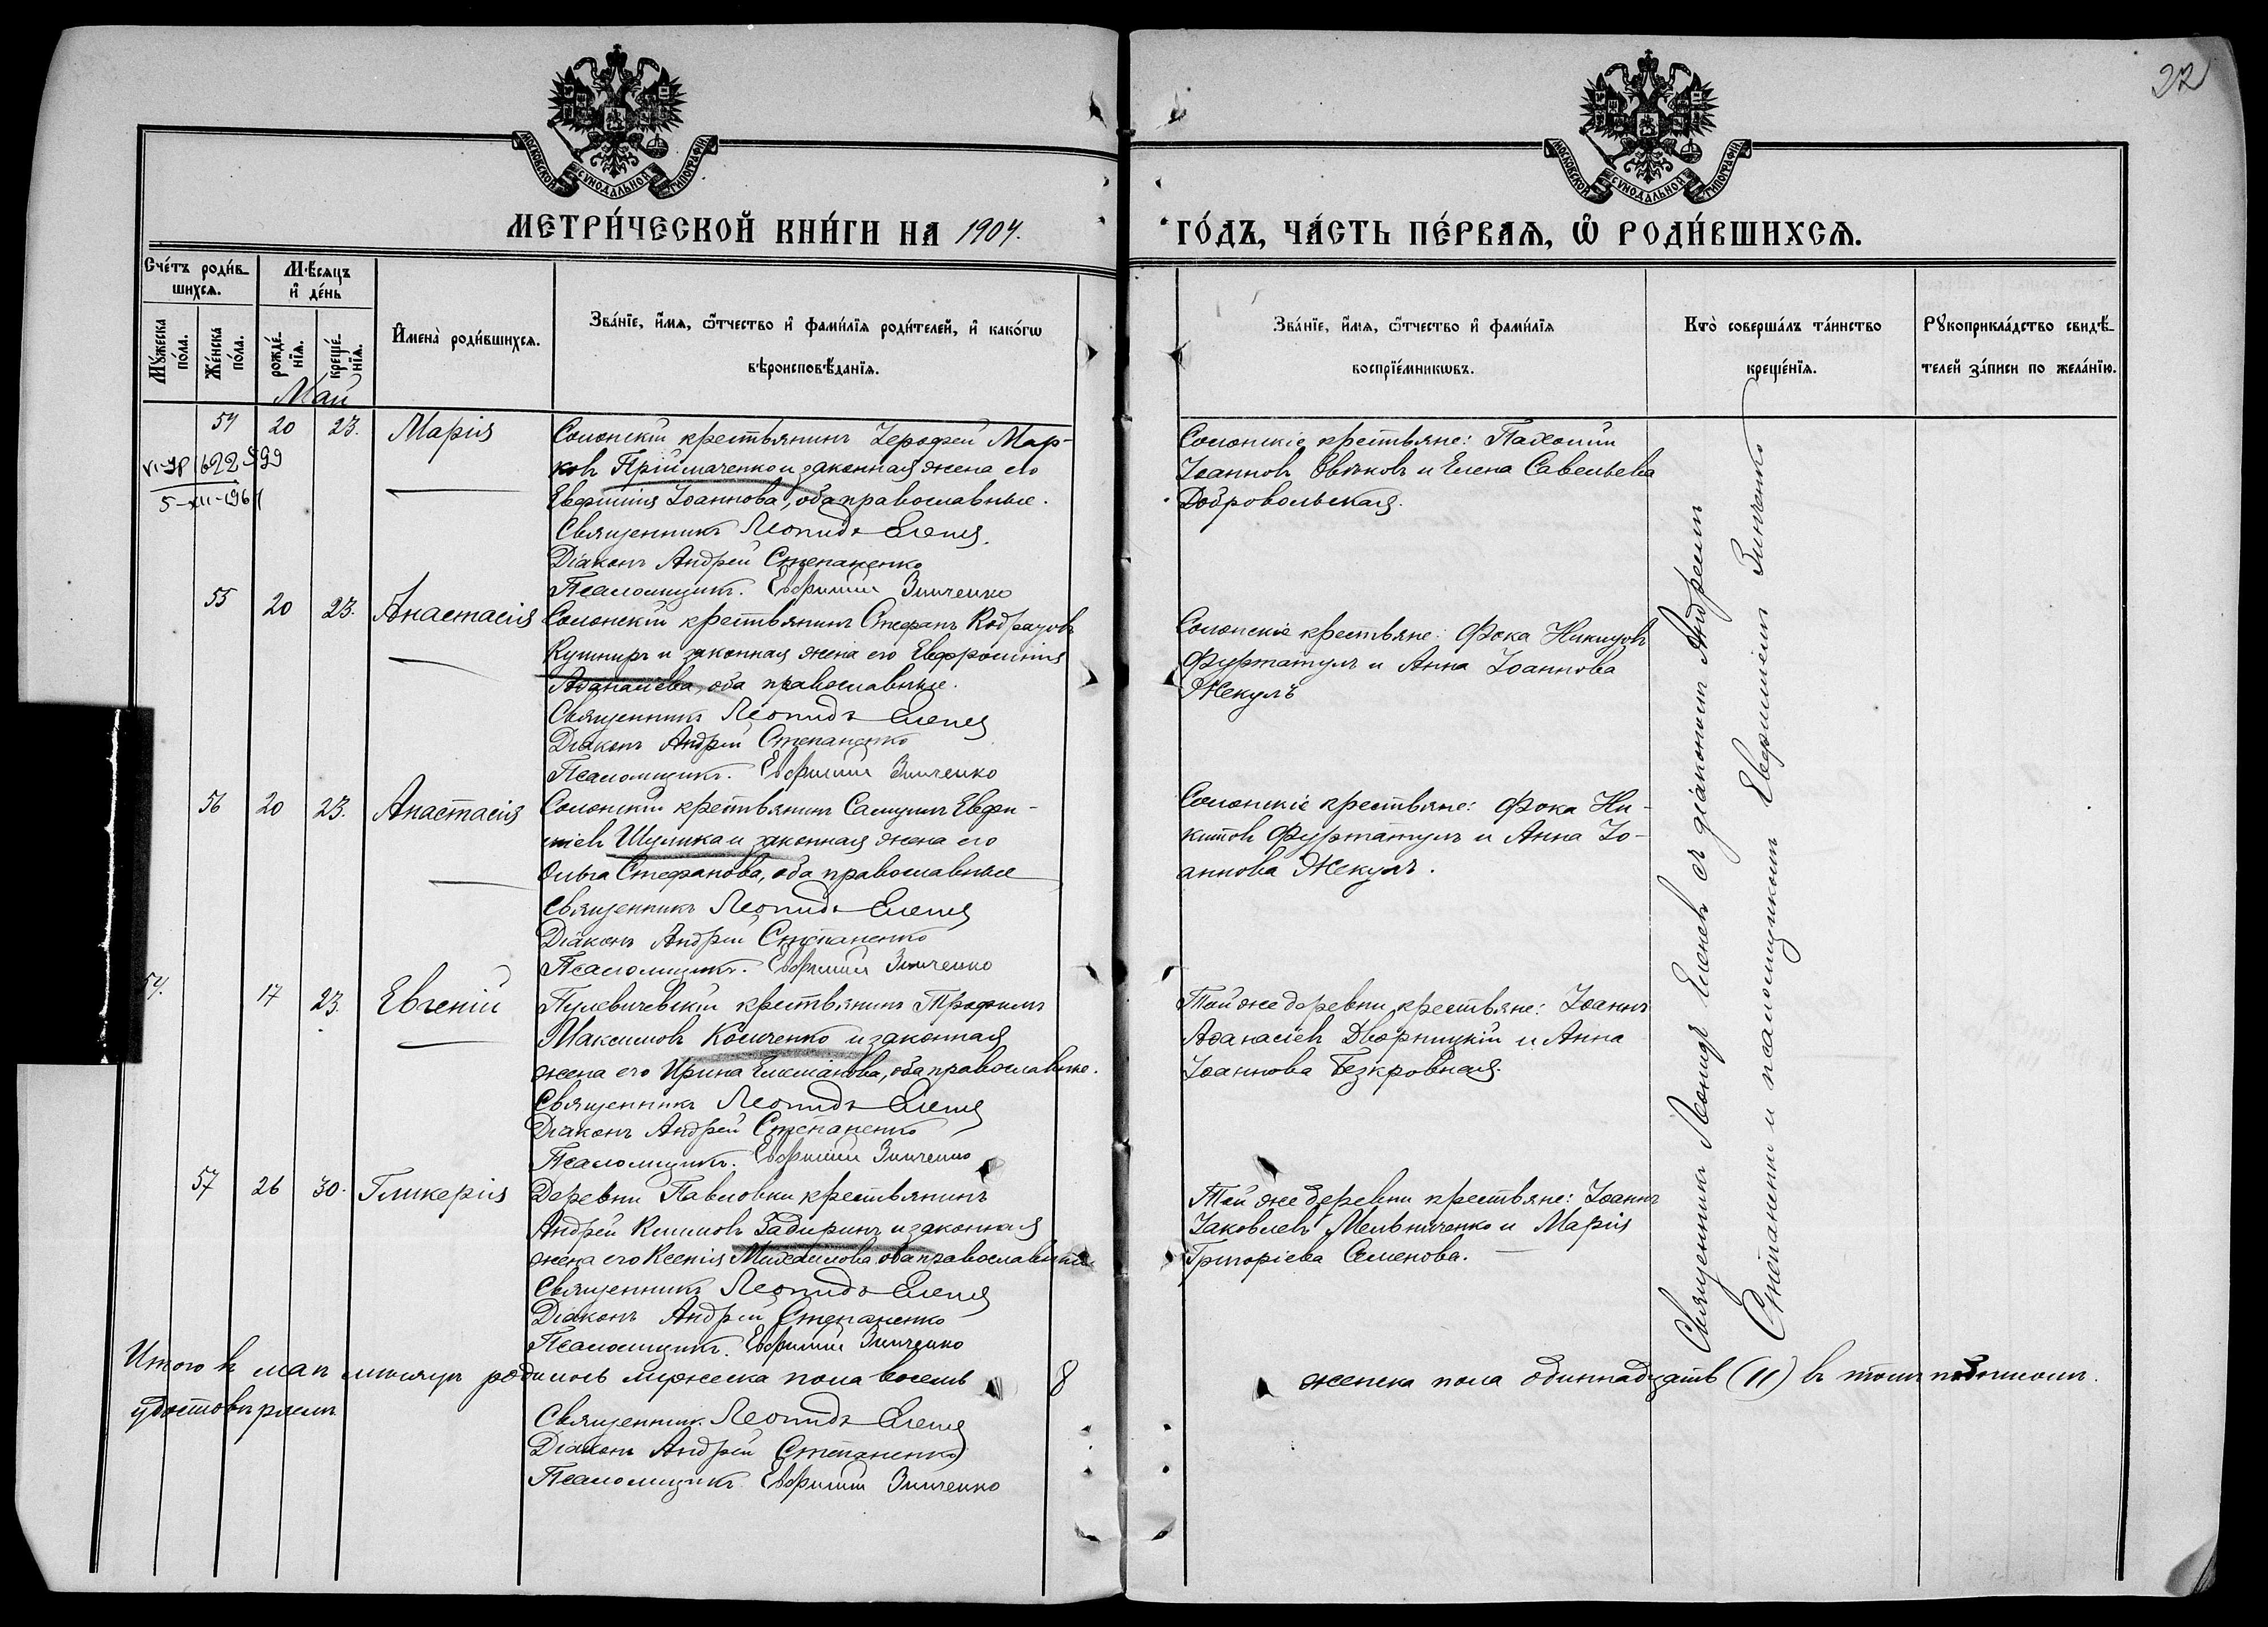 22
МОСКОВСКОЙ СѴНОДАЛЬНОЙ ТИПОГРАФІИ
МОСКОВСКОЙ СѴНОДАЛЬНОЙ ТИПОГРАФІИ
МЕТРИ́ЧЕСКОЙ КНИ́ГИ НА 1904.
ГО́ДЪ, ЧА́СТЬ ПЕ́РВАѦ, Ѽ РОДИ́ВШИХСѦ.
Сче́тъ роди́вшихсѧ.
Мꙋ́жеска по́ла.
Же́нска по́ла.
Мѣ́сѧцъ и҆ де́нь
рожде́нїѧ.
креще́нїѧ.
И҆мена̀ роди́вшихсѧ.
Зва́нїе, и҆́мѧ, ѻ҆́тчество и҆ фами́лїѧ роди́телей, и҆ како́гѡ
вѣроисповѣ́данїѧ.
Зва́нїе, и҆́мѧ, ѻ҆́тчество и҆ фами́лїѧ
воспрїе́мникѡвъ.
Кто̀ соверша́лъ та́инство
креще́нїѧ.
Рꙋкоприкла́дство свидѣ́-
телей за́писи по жела́нїю.
Май
54 20 23. Марія
Солонскій крестьянинъ Іерофей Мар-
ковъ Пріймаченко и законная жена его
Евфимія Іоаннова, оба православные.
Священникъ Леонидъ Еленев
Діаконъ Андрей Степаненко
Псаломщикъ. Евфимій Зинченко
Солонскіе крестьяне: Пахомій
Іоанновъ и Елена Савельева
Добровольская.
5-XII-1961
55 20 23. Анастасія
Солонскій крестьянинъ Стефанъ Кодратовъ
Кушниръ и законная жена его Евфросинія
Аѳанасіева, оба православные.
Священникъ Леонидъ Еленев
Діаконъ Андрей Степаненко
Псаломщикъ. Евфимій Зинченко
Солонскіе крестьяне: Фока Никитовъ
Фуртатулъ и Анна Іоаннова
Жекулъ
56 20 23. Анастасія
Солонскій крестьянинъ Самуилъ Евфи-
міевъ Шулика и законная жена его
Ольга Стефанова, оба православные
Священникъ Леонидъ Еленев
Діаконъ Андрей Степаненко
Псаломщикъ. Евфимій Зинченко
Солонскіе крестьяне: Фока Ни-
китовъ Фуртатулъ и Анна Іо-
аннова Жекулъ.
54. 17 23. Евгеній
Пулевичевскій крестьянинъ Трофимъ
Максимовъ Количенко и законная
жена его Ирина, оба православные.
Священникъ Леонидъ Еленев
Діаконъ Андрей Степаненко
Псаломщикъ. Евфимій Зинченко
Той же деревни крестьяне: Іоаннъ
Аѳанасіевъ Дворницкій и Анна
Іоаннова Безкровная.
57 26 30. Гликерія
Деревни Павловки крестьянинъ
Андрей Климовъ Задиринъ и законная
жена его Ксенія Михаилова, оба православные
Священникъ Леонидъ Еленев
Діаконъ Андрей Степаненко
Псаломщикъ. Евфимій Зинченко
Той же деревни крестьяне: Іоаннъ
Іаковлевъ Мельниченко и Марія
Григоріева Семенова.
Священникъ Леонидъ Еленевъ съ діакономъ Андреемъ
Степаненко и псаломщикомъ Евфиміемъ Зинченко
Итого въ маѣ мѣсяцѣ родилось мужеска пола восемь 8 женска пола одиннадцать (11) въ томъ
удостовѣряемъ
Священникъ Леонидъ Еленев
Діаконъ Андрей Степаненко
Псаломщикъ. Евфимій Зинченко